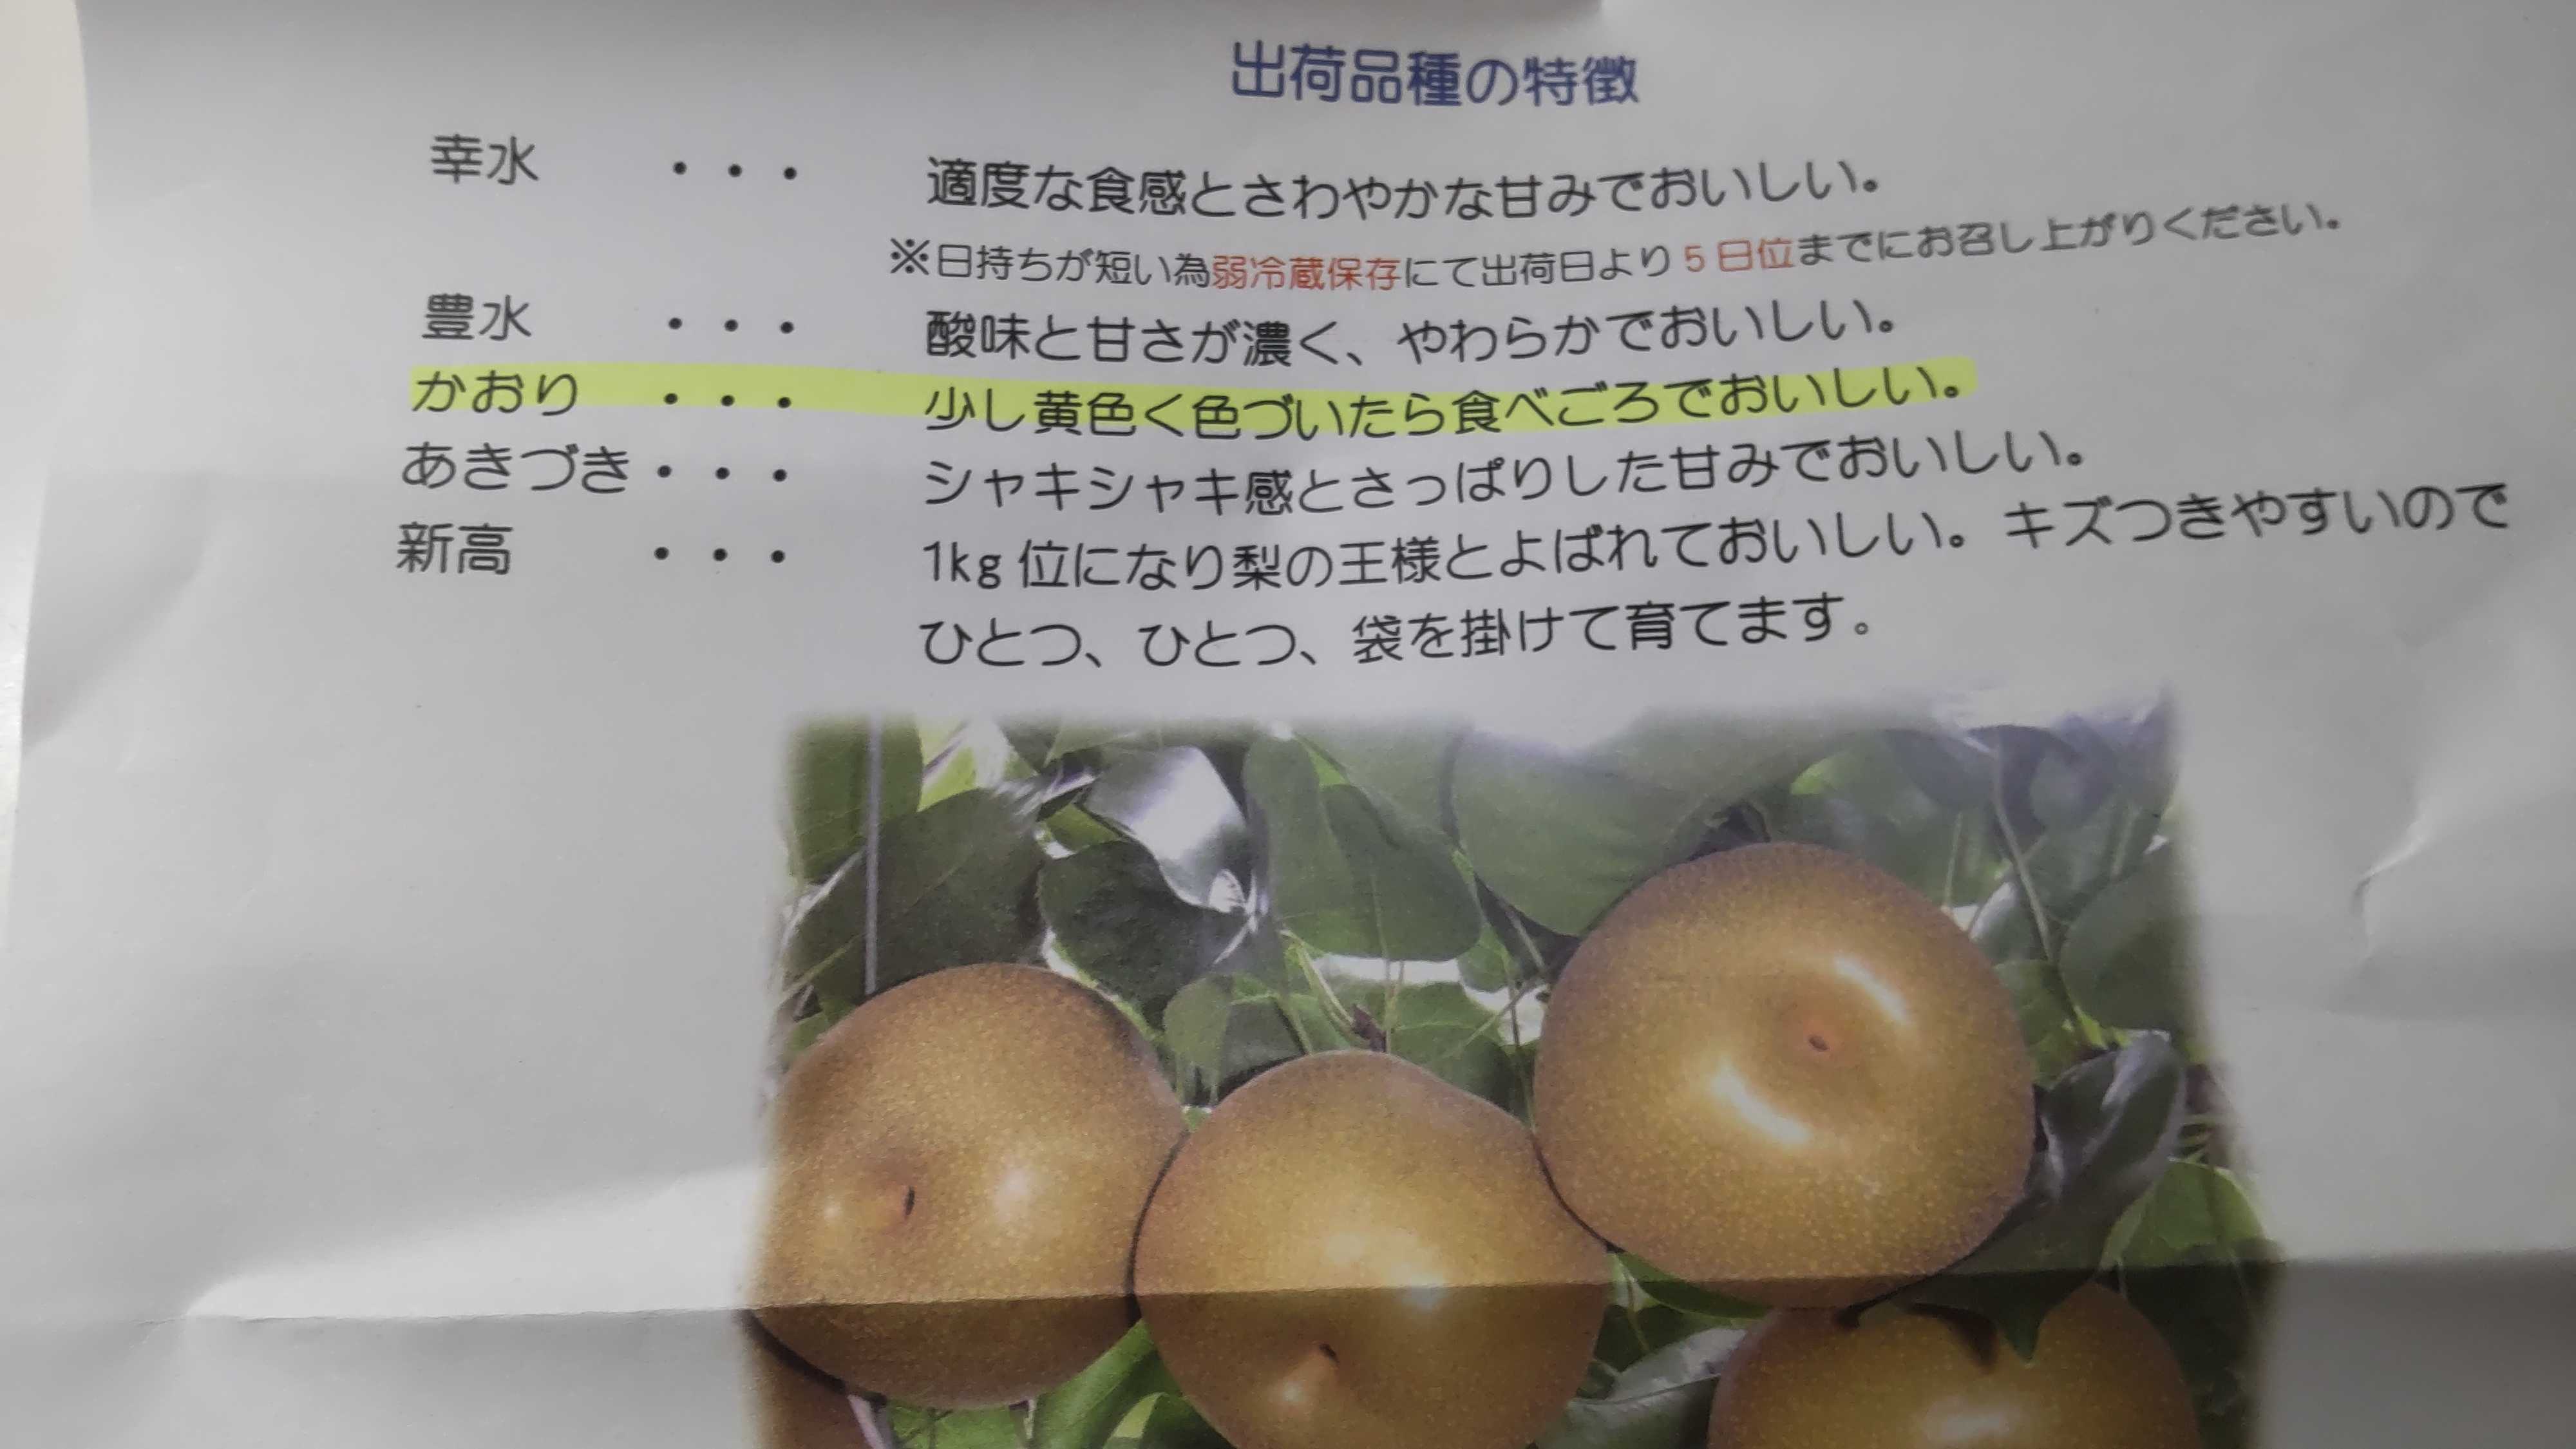 出荷品種の特徴
幸水 ・・・ 適度な食感とさわやかな甘みでおいしい。
※日持ちが短い為弱冷蔵保存にて出荷日より5日位までにお召し上がりください。
豊水 ・・・ 酸味と甘さが濃く、やわらかでおいしい。
かおり ・・・ 少し黄色く色づいたら食べごろでおいしい。
あきづき・・・ シャキシャキ感とさっぱりした甘みでおいしい。
新高 ・・・ 1kg 位になり梨の王様とよばれておいしい。キズつきやすいので
ひとつ、ひとつ、袋を掛けて育てます。